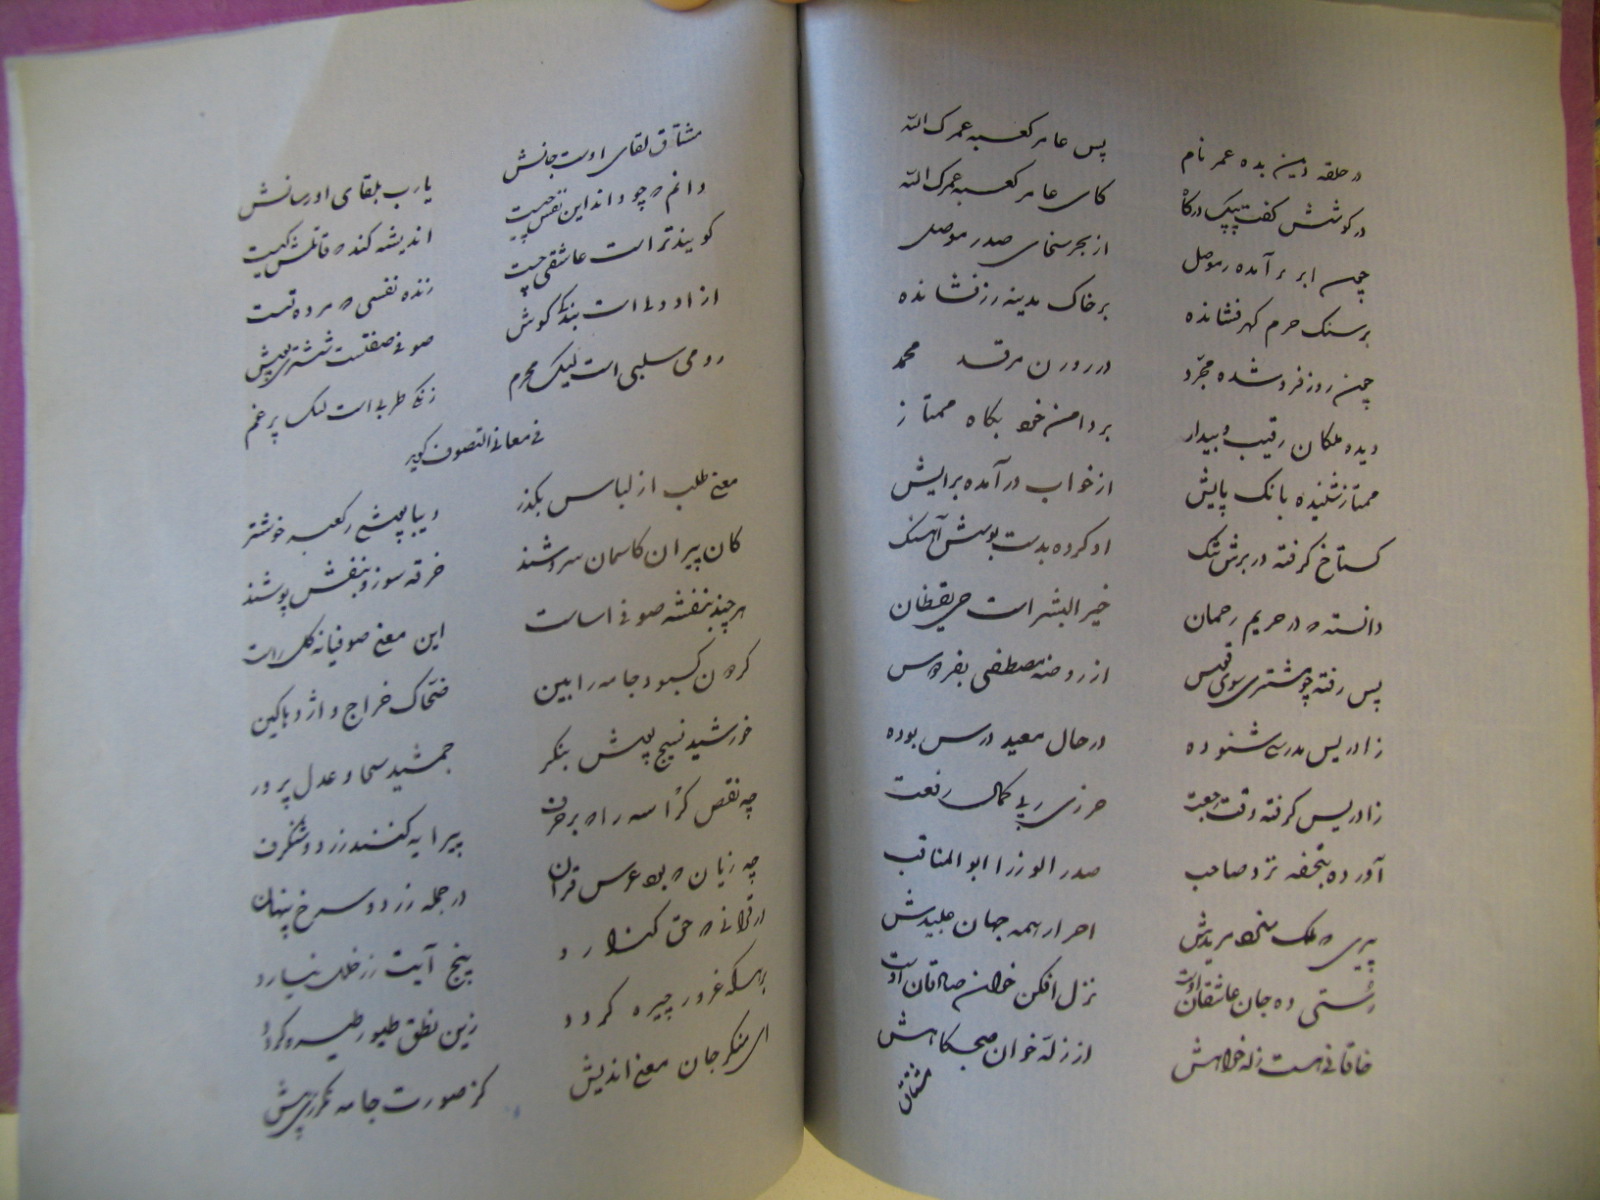 در حلقه دین بده عمر نام
پس عامر کعبه عمرک الله
در کوشش کفت پیک درکاه
کای عامر کعبه عمرک الله
چون ابر برآمده ز موصل
از بحر سخای صدر موصل
بر سنک حرم کهر فشانده
بر خاک مدینه زر فشانده
چون روز فرو شده مجرد
در روزن مرقد محمد
دیده ملکان رقیب و بیدار
بر دامن خود بکاه ممتاز
ممتاز شنیده بانک پایش
از خواب درآمده برایش
کستاخ کرفته در برش تنک
او کرده بدست بوسش آهنک
دانسته که در حریم رحمان
خیر البشر است حی یقظان
پس رفته چو مشتری سوی قوس
از روضه مصطفی بفردوس
ز ادریس مدرسی شنوده
در حال معید درس بوده
ز ادریس کرفته وقت رجعت
حرزی ز پی کمال رفعت
آورده بتحفه نزد صاحب
صدر الوزرا ابو المناقب
پیری که ملک سخد مریدش
احرار همه جهان عبیدش
رستی ده جان عاشقان اوست
نزل افکن خوان صادقان اوست
خاقانی هست زله خواهش
از زله خوان صبحکاهش
مشتاق
مشتاق لقای اوست جانش
یارب بلقای او رسانش
دانم که چو داند این نفس چیست
اندیشه کند که قائلش کیست
کویند تر است عاشقی چست
زنده نفسی که مرده تست
از او دلها است بنده کوش
صوفی صفتست ششتری پوش
رومی سلبی است لیک محرم
زنکی طربی است لیک پر غم
فی معانی التصوف کوید
معنی طلب از لباس بکذر
دیبا پوشی ز کعبه خوشتر
کان پیران کاسمان سروشند
خرقه سوز و بنفش پوشند
هر چند بنفشه صوفی اساست
این معنی صوفیانه کل راست
کردن کبود جامه را بین
ضحاک خراج و اژدها کین
خورشید نسیج پوش بنکر
جمشید سخا و عدل پرور
چه نقص کراسه را که بر حرف
پیرایه کنند زرد و شنکرف
چه زیان که بود عروس قرآن
در جمله زرد و سرخ پنهان
قرآنی که حق کذارد
پنج آیت زر خلل نیارد
هر سکه غرور چیره کردد
زین نطق طیور طیره کردد
ای منکر جان معنی اندیش
کز صورت جامه نکذری پیش